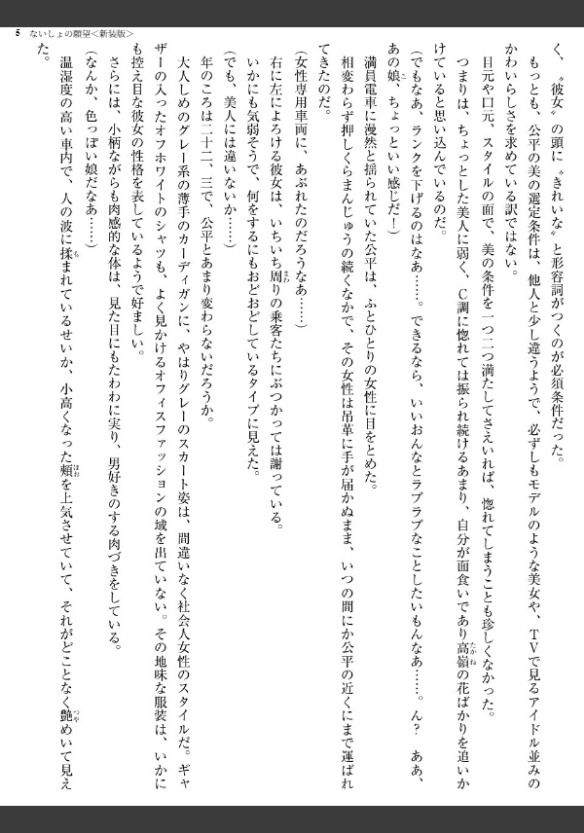 5 ないしょの願望<新装版>
く、〝彼女〟の頭に〝きれいな〟と形容詞がつくのが必須条件だった。
もっとも、公平の美の選定条件は、他人と少し違うようで、必ずしもモデルのような美女や、TVで見るアイドル並みの
かわいらしさを求めている訳ではない。
目元や口元、スタイルの面で、美の条件を一つ二つ満たしてさえいれば、惚れてしまうことも珍しくなかった。
つまりは、ちょっとした美人に弱く、C調に惚れては振られ続けるあまり、自分が面食いであり高嶺の花ばかりを追いか
けていると思い込んでいるのだ。
(でもなあ、ランクを下げるのはなあ……。できるなら、いいおんなとラブラブなことしたいもんなあ……。ん? ああ、
あの娘、ちょっといい感じだー)
満員電車に漫然と揺られていた公平は、ふとひとりの女性に目をとめた。
相変わらず押しくらまんじゅうの続くなかで、その女性は吊革に手が届かぬまま、いつの間にか公平の近くにまで運ばれ
てきたのだ。
(女性専用車両に、あぶれたのだろうなあ……)
右に左によろける彼女は、いちいち周りの乗客たちにぶつかっては謝っている。
いかにも気弱そうで、何をするにもおどおどしているタイプに見えた。
(でも、美人には違いないか……)
年のころは二十二、三で、公平とあまり変わらないだろうか。
大人しめのグレー系の薄手のカーディガンに、やはりグレーのスカート姿は、間違いなく社会人女性のスタイルだ。ギャ
ザーの入ったオフホワイトのシャツも、よく見かけるオフィスファッションの域を出ていない。その地味な服装は、いかに
も控え目な彼女の性格を表しているようで好ましい。
さらには、小柄ながらも肉感的な体は、見た目にもたわわに実り、男好きのする肉づきをしている。
(なんか、色っぽい娘だなあ……)
温湿度の高い車内で、人の波に揉まれているせいか、小高くなった頬を上気させていて、それがどことなく艶めいて見え
た。